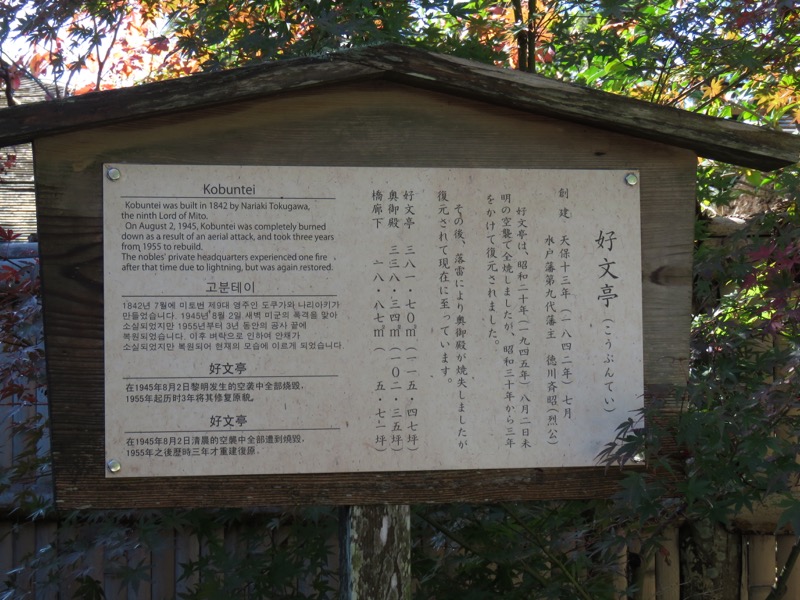 Kobuntei
Kobuntei was built in 1842 by Nariaki Tokugawa,
the ninth Lord of Mito.
On August 2, 1945, Kobuntei was completely burned
down as a result of an aerial attack, and took three years
from 1955 to rebuild.
The nobles' private headquarters experienced one fire
after that time due to lightning, but was again restored.
고분테이
1842년 7월에 미토번 제9대 영주인 도쿠가와 나리아키가
만들었습니다. 1945년 8월 2일 새벽 미군의 폭격을 맞아
소실되었지만 1955년부터 3년 동안의 공사 끝에
복원되었습니다. 이후 벼락으로 인하여 안채가
소실되었지만 복원되어 현재의 모습에 이르게 되었습니다.
好文亭
在1945年8月2日黎明发生的空袭中全部烧毁,
1955年起历时3年将其修复原貌。
好文亭
在1945年8月2日清晨的空襲中全部遭到燒毀,
1955年之後歷時三年才重建復原。
好文亭(こうぶんてい)
創建 天保十三年(一八四二年)七月
水戸藩第九代藩主 徳川斉昭(烈公)
好文亭は、昭和二十年(一九四五年)八月二日未
明の空襲で全焼しましたが、昭和三十年から三年
をかけて復元されました。
その後、落雷により奥御殿が焼失しましたが
復元されて現在に至っています。
好文亭 三八一・七〇㎡(一一五・四七坪)
奥御殿 三三八・三四㎡(一〇二・三五坪)
橋廊下 一八・八七㎡( 五・七一坪)